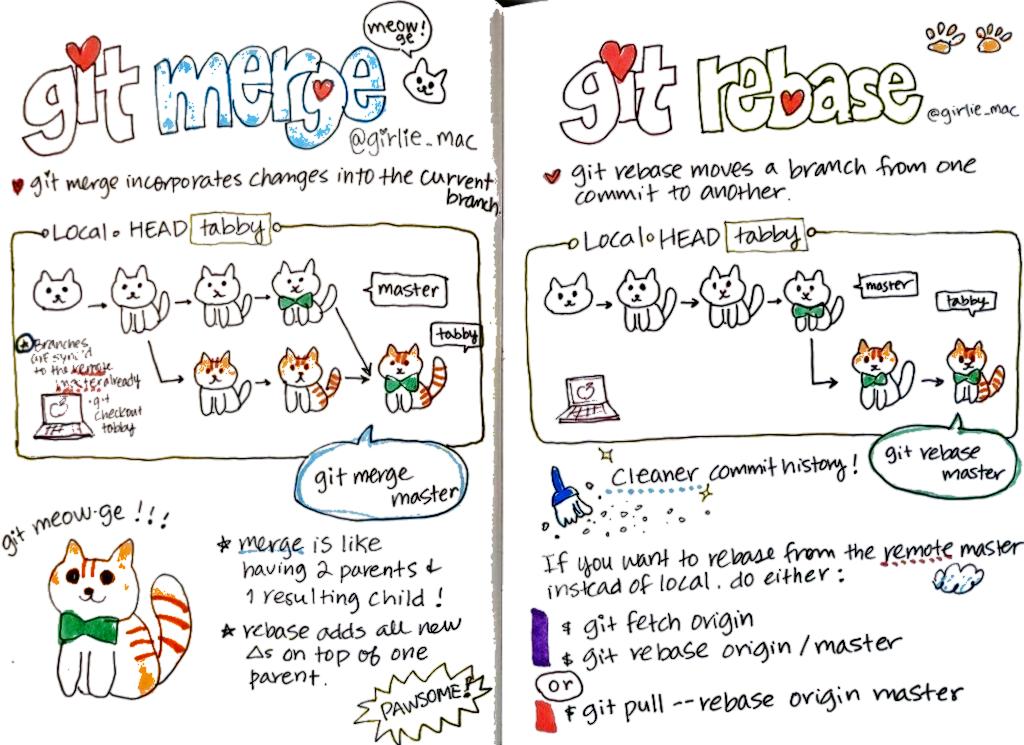 git merge
meow!
ge
@girlie_mac
git merge incorporates changes into the current
branch.
Local • HEAD tabby
master
tabby
Branches
are sync'd
to the remote
master already
• git
checkout
tabby
git merge
master
git meow·ge !!!
★ merge is like
having 2 parents &
1 resulting child !
★ rebase adds all new
Δs on top of one
parent.
PAWSOME!
git rebase
@girlie_mac
git rebase moves a branch from one
commit to another.
Local • HEAD tabby
master
tabby
git rebase
master
Cleaner commit history!
If you want to rebase from the remote master
instead of local. do either:
$ git fetch origin
$ git rebase origin/master
or
$ git pull --rebase origin master